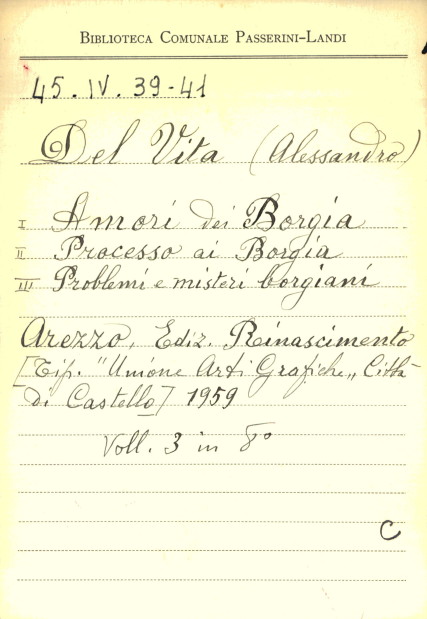 BIBLIOTECA COMUNALE PASSERINI-LANDI
45. IV. 39-41
Del Vita (Alessandro)
I Amori dei Borgia
II Processo ai Borgia
III Problemi e misteri borgiani
Arezzo, Ediz. Rinascimento
[Tip. "Unione Arti Grafiche„ Città
di Castello] 1959
Voll. 3 in 8°
C